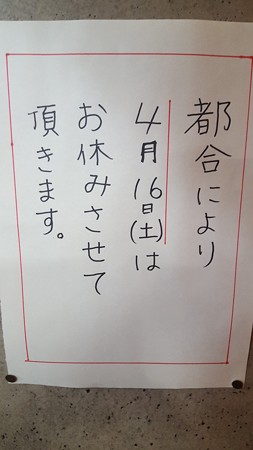 都合により
4月16日(土)は
お休みさせて
頂きます。